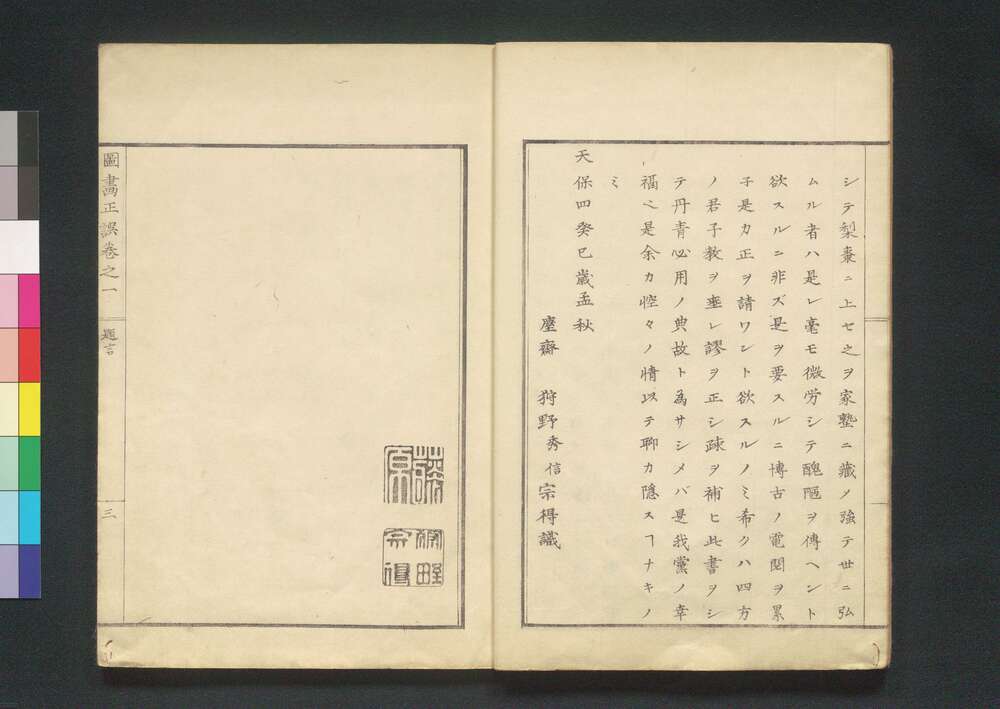 シテ梨棗ニ上セ之ヲ家塾ニ藏ノ強テ世ニ弘
ムル者ハ是レ毫モ微労シテ醜陋ヲ傳ヘント
欲スルニ非ズ是ヲ要スルニ博古ノ電閲ヲ累
子是カ正ヲ請ワント欲スルノミ希クハ四方
ノ君子教ヲ垂レ謬ヲ正シ疎ヲ補ヒ此書ヲシ
テ丹青必用ノ典故ト為サシメバ是我黨ノ幸
福ニ是余カ悾々ノ情以テ聊カ隠スヿナキノ
ミ
天保四癸巳歳孟秋
塵齋 狩野秀信宗得識
藤原
狩野宗得
圖畵正誤卷之一 題言 三